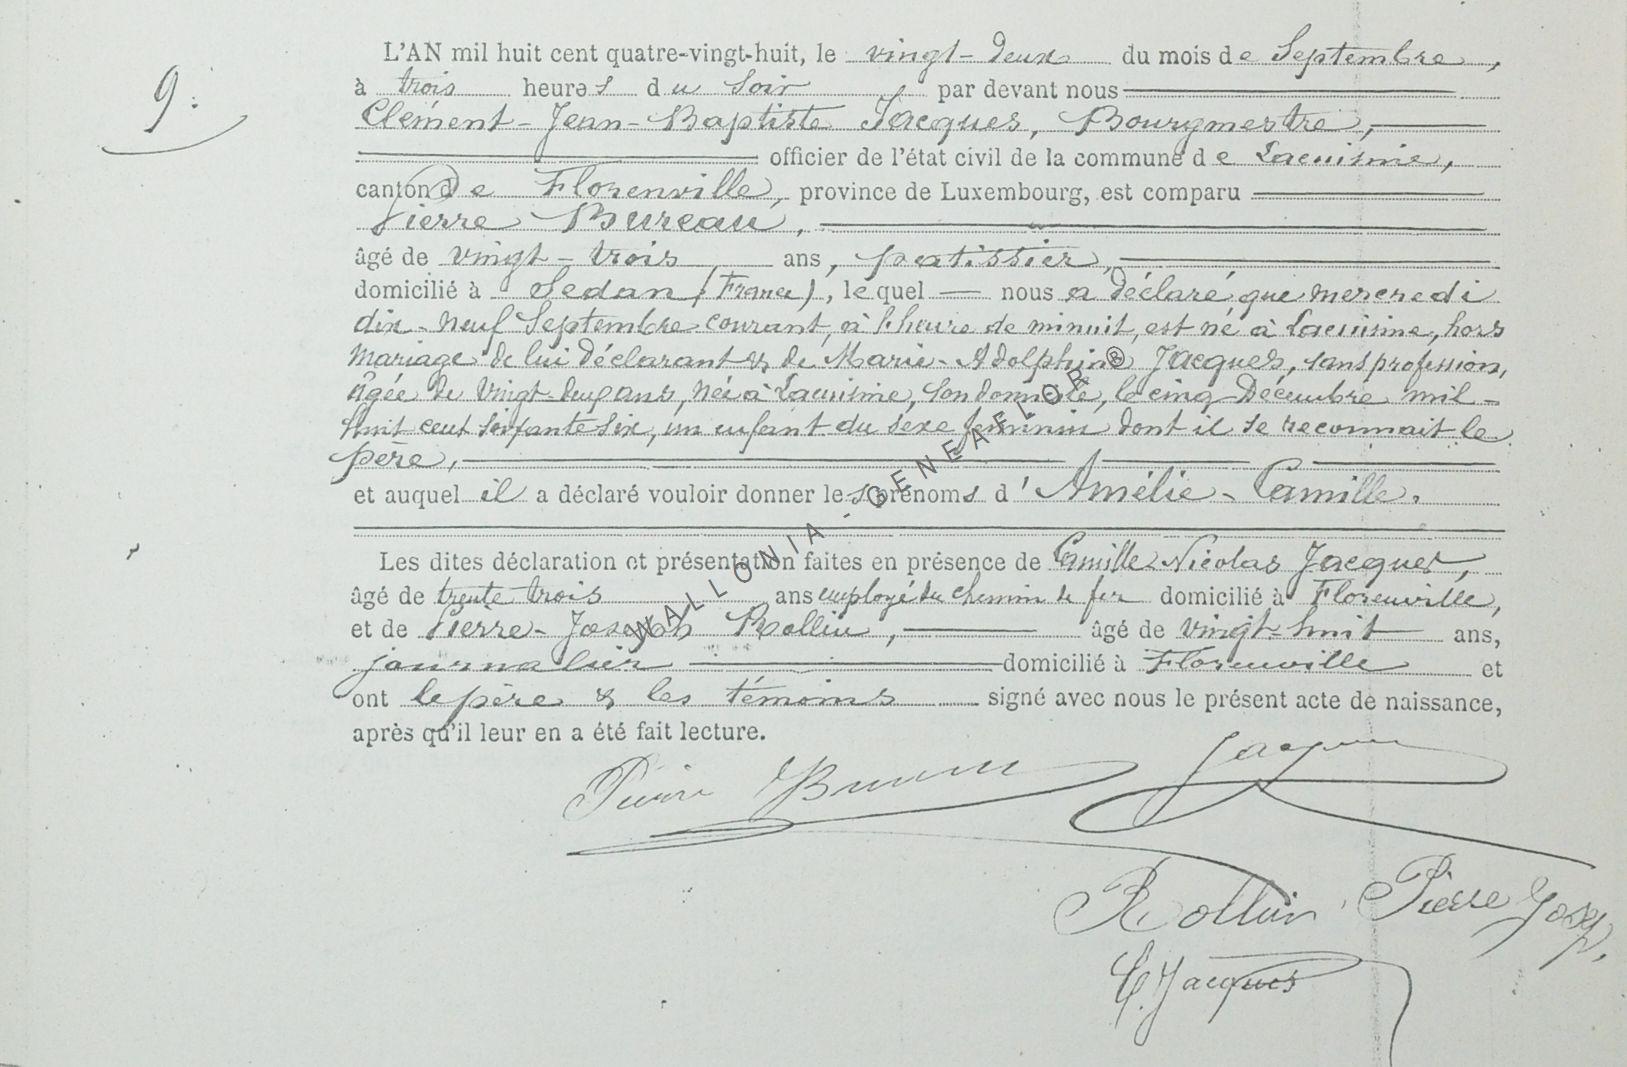 9.
L'AN mil huit cent quatre-vingt-huit, le vingt-deux du mois de Septembre,
à trois heures du soir par devant nous
Clément-Jean-Baptiste Jacques, Bourgmestre,
officier de l'état civil de la commune de Lacuisine,
canton de Florenville, province de Luxembourg, est comparu
Pierre Bureau,
âgé de vingt-trois ans, patissier,
domicilié à Sedan (France), lequel nous a déclaré que mercredi
dix-neuf Septembre courant, à l'heure de minuit, est né à Lacuisine, hors
mariage de lui déclarant & de Marie-Adolphine Jacques, sans profession,
âgée de vingt-deux ans, née à Lacuisine, son domicile, le cinq Décembre mil-
huit cent soixante six, un enfant du sexe feminin dont il se reconnait le
père,
et auquel il a déclaré vouloir donner les prénoms d'Amélie-Camille.
Les dites déclaration et présentation faites en présence de Camille-Nicolas Jacques,
âgé de trente trois ans employé du chemin de fer domicilié à Florenville,
et de Pierre-Joseph Rollin, âgé de vingt-huit ans,
journalier domicilié à Florenville et
ont le père & les témoins signé avec nous le présent acte de naissance,
après qu'il leur en a été fait lecture.
Pierre Bureau Jacques
Rollin Pierre Josep.
C. Jacques
WALLONIA - GENEAFLOR ®